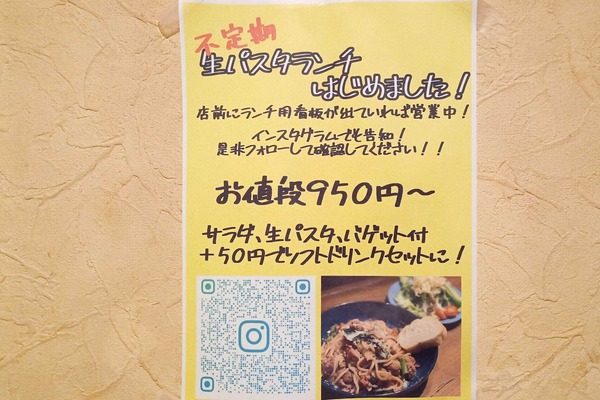 不定期
生パスタランチ
はじめました!
店前にランチ用看板が出ていれば営業中!
インスタグラムでも告知!
是非フォローして確認してください!!
お値段950円~
サラダ、生パスタ、バゲット付
+50円でソフトドリンクセットに!